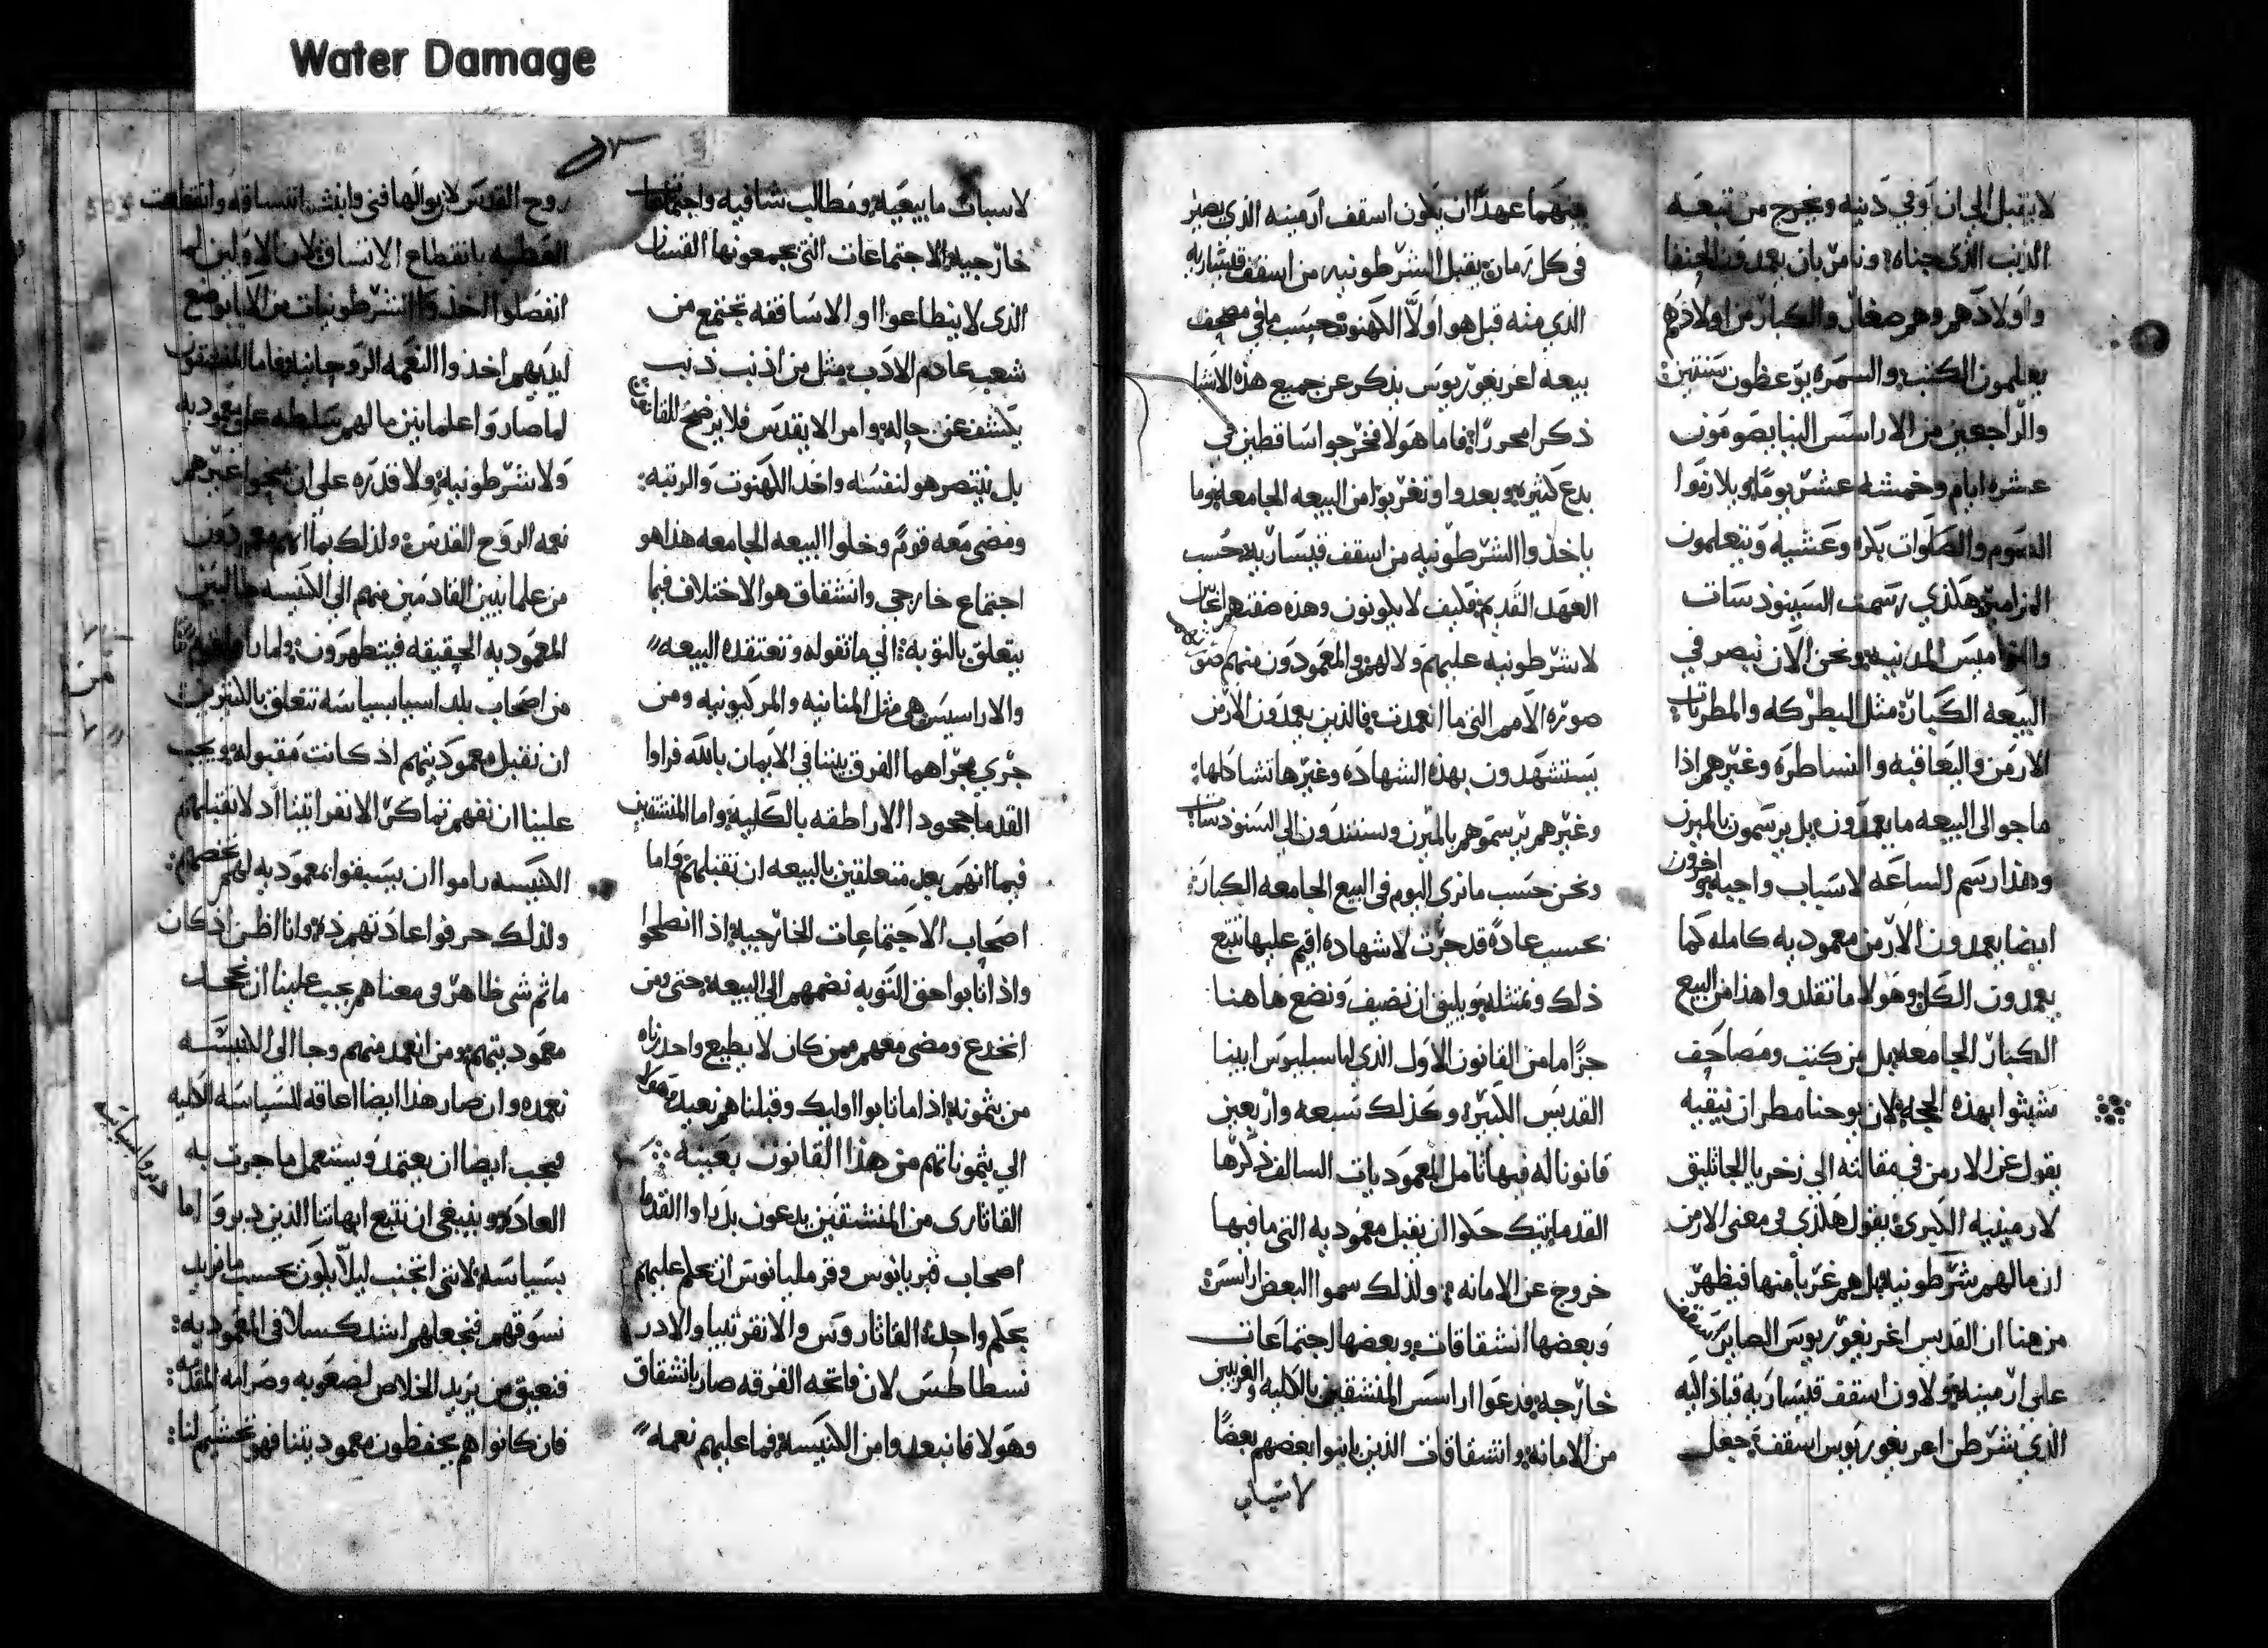 Water Damage
لا يقبل الي ان اوفي دنيه ويخرج من تبعه
الذنب الذي جناه ونامر بان يعمدون الحنفا
واولادهم وهم صغار والكبار من اولادهم
يعلمون الكتب والسمره يوعظون سنتين
والراجعين من الاراسس الينا يصومون
عشره ايام وخمسه عشر يوما ويلازموا
الصوم والصلوات بكره وعشيه ويتعلمون
المزامير هكذي رسمت السينودسات
والنواميس المدنيه ونحن الان نبصر في
البيعه الكبار مثل البطركه والمطرنات
الارمن واليعاقبه والنساطره وغيرهم اذا
ما جوا الي البيعه ما يعمدون بل يرسمون بالميرن
وهذا رسم الساعه لاسباب واجبه واخرون
ايضا يعمدون الارمن معموديه كامله كما
يعمدون الكل وهولا ما تقلدوا هذا من البيع
الكبار الجامعه بل من كتب ومصاحف
تشبثوا بهذه الحجه لان يوحنا مطران نيقيه
يقول عن الارمن في مقالته الي زخريا الجاثليق
لارمينيه الكبري يقول هكذي في معني الارمن
ان مالهم شرطونيه بل هم غربا منها فيظهر
من هنا ان القديس اغريغوريوس الصاير اسقفا
علي ارمينيه ولاون اسقف قيساريه قباذاقيه
الذي شرطن اغريغوريوس اسقفا جعل
بينهما عهدا ان يكون اسقف ارمينيه الذي يصير
في كل زمان يقبل الشرطونيه من اسقف قيساريه
الذي منه قبل هو اولا الكهنوت حسب ما في مصحف
بيعه اغريغوريوس يذكر عن جميع هذه الاشيا
ذكرا محررا فاما هولا فخرجوا ساقطين في
بدع كثيره وبعدوا وتغربوا من البيعه الجامعه وما
ياخذوا الشرطونيه من اسقف قيساريه حسب
العهد القديم فكيف لا يكونون وهذه صفتهم اغراب
لا شرطونيه عليهم ولا لهم والمعمودون منهم
صوره الامم التي ما انعمدت فالذين يعمدون الارمن
يستشهدون بهذه الشهاده وغيرها تشاكلها
وغيرهم يرسموهم بالميرن ويستندون الي السنودسات
ونحن حسب ما نري اليوم في البيع الجامعه الكبار
بحسب عاده قد جرت لا شهاده اقيم عليها نتبع
ذلك ونمتثله ويليق ان نضيف ونضع هاهنا
جزا ما من القانون الاول الذي لباسيليوس ابينا
القديس الكبير وكذلك سبعه واربعين
قانونا له فيها تامل المعموديات السالف ذكرها
القدما بتيك حكوا ان يقبل معموديه التي ما فيها
خروج عن الامانه ولذلك سموا البعض اراسس
وبعضها انشقاقات وبعضها اجتماعات
خارجه ودعوا اراسس المنشقين بالكليه والغريبين
من الامانه وانشقاقات الذين باينوا بعضهم بعضا
لاسباب
لاسباب ما بيعيه ومطالب شافيه واجتماعات
خارجيه الاجتماعات التي يجمعونها القسان
الذي لا ينطاعوا او الاساقفه تجتمع من
شعب عادم الادب مثل من اذنب ذنب
يكشف عن حاله وامر الا يقدس فلا يرضخ للقانون
بل ينتصر هو لنفسه واخذ الكهنوت والرتبه
ومضي معه قوم وخلوا البيعه الجامعه هذا هو
اجتماع خارجي وانشقاق هو الاختلاف فيما
يتعلق بالتوبه الي ما تقوله وتعتقده البيعه
والاراسيس هي مثل المنانيه والمركيونيه ومن
جري مجراهما الفرق بيننا في الايمان بالله فراوا
القدما جحود الاراطقه بالكليه واما المنشقين
فبما انهم بعد متعلقين بالبيعه ان نقبلهم واما
اصحاب الاجتماعات الخارجيه اذا انصلحوا
واذا تابوا حق التوبه نضمهم الي البيعه حتي ومن
انخدع ومضي معهم ممن كان لا يطيع واحد زناه
من يثمونه اذا ما تابوا اوليك وقبلنا هم نعيد هولا
الي يثموناتهم من هذا القانون بعينه
القاثاري من المنشقين يدعون بل راوا القدما
اصحاب قبريانوس وفرمليانوس ان نحكم عليهم
بحكم واحد القاثاروس والانقرتيبا والادر
نسطاطس لان فاتحه الفرقه صار بانشقاق
وهولا فانبعدوا من الكنيسه فما عليهم نعمه
روح القدس لان نوالها فني وانقش انتساقه وانقطعت
العطيه بانقطاع الانتساق لان الاولين لما
انفصلوا اخذوا الشرطونيات من الابا بوضع
ايديهم اخذوا النعمه الروحانيه فاما المنشقون
لما صاروا علمانين مالهم سلطه علي معموديه
ولا شرطونيه ولا قدره علي ان يمنحوا غيرهم
نعمه الروح القدس ولذلك بما انهم معمدون
من علمانيين القادمين منهم الي الكنيسه طالبين
المعموديه الحقيقيه فيتطهرون ولما راوا قوما
من اصحاب بلد اسيا بسياسه تتعلق بالكثيرين
ان نقبل معموديتهم اذ كانت مقبوله ويجب
علينا ان نفهم تماكر الانقراتيتا اد لا تقبلهم
الكنيسه راموا ان يسبقوا بمعموديه لهم تخصهم
ولذلك حرفوا عادتهم ذه وانا اظن اذ كان
ما ثم شي ظاهر في معناهم يجب علينا ان نجحد
معموديتهم ومن انعمد منهم وجا الي الكنيسه
نعمده وان صار هذا ايضا اعاقه للسياسه الكليه
فيجب ايضا ان يعتمد ويستعمل ما جرت به
العاده وينبغي ان نتبع ابهاتنا الذين دبروا اما
بسياسه لانني اتجنب ليلا يكون بحسب ما نريد
نسوقهم فنجعلهم اشد كسلا في المعموديه
فنعيق من يريد الخلاص لصعوبه وصرامه المقدمه
فان كانوا هم يحفظون معموديتنا فهو يحشيهم لنا